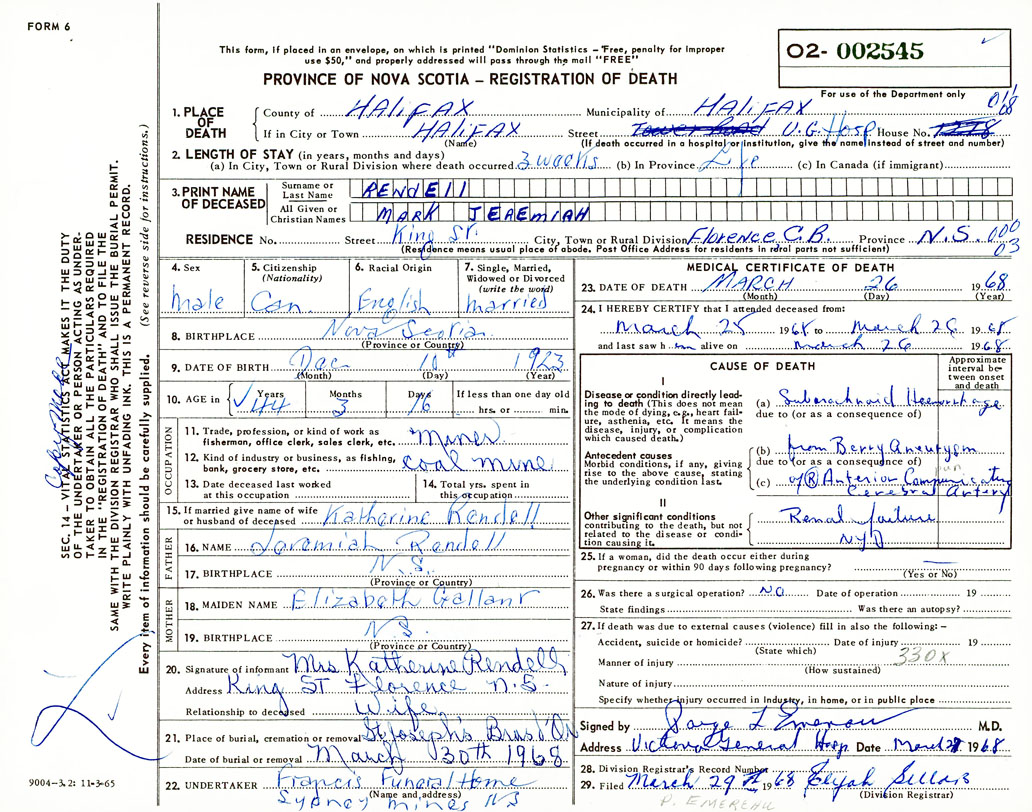 FORM 6
This form, if placed in an envelope, on which is printed "Dominion Statistics – Free, penalty for improper
use $50," and properly addressed will pass through the mail "FREE"
PROVINCE OF NOVA SCOTIA – REGISTRATION OF DEATH
O2- 002545
For use of the Department only
018
1. PLACE OF DEATH
County of HALIFAX Municipality of HALIFAX
If in City or Town HALIFAX Street Tower Road V.G. Hosp House No. 1278
(Name) (If death occurred in a hospital or institution, give the name instead of street and number)
2. LENGTH OF STAY (in years, months and days)
(a) In City, Town or Rural Division where death occurred 3 weeks (b) In Province Life (c) In Canada (if immigrant)
3. PRINT NAME OF DECEASED
Surname or Last Name RENDELL
All Given or Christian Names MARK JEREMIAH
RESIDENCE No. Street King St. City, Town or Rural Division Florence C.B. Province N.S. 000
03
(Residence means usual place of abode. Post Office Address for residents in rural parts not sufficient)
4. Sex
male
5. Citizenship
(Nationality)
Can.
6. Racial Origin
English
7. Single, Married,
Widowed or Divorced
(write the word)
married
8. BIRTHPLACE Nova Scotia
(Province or Country)
9. DATE OF BIRTH Dec 10th 1923
(Month) (Day) (Year)
10. AGE in Years Months Days If less than one day old
44 3 16 hrs. or min.
OCCUPATION
11. Trade, profession, or kind of work as
fisherman, office clerk, sales clerk, etc. Miner
12. Kind of industry or business, as fishing,
bank, grocery store, etc. coal mine
13. Date deceased last worked
at this occupation
14. Total yrs. spent in
this occupation
15. If married give name of wife
or husband of deceased Katherine Rendell
FATHER
16. NAME Jeremiah Rendell
17. BIRTHPLACE N.S.
(Province or Country)
MOTHER
18. MAIDEN NAME Elizabeth Gallant
19. BIRTHPLACE N.S.
(Province or Country)
20. Signature of informant Mrs Katherine Rendell
Address King ST Florence N.S.
Relationship to deceased Wife
21. Place of burial, cremation or removal St Joseph's Bras d'Or
Date of burial or removal March 30th 1968
22. UNDERTAKER Francis Funeral Home
(Name and address)
Sydney Mines NS
MEDICAL CERTIFICATE OF DEATH
23. DATE OF DEATH MARCH 26 1968
(Month) (Day) (Year)
24. I HEREBY CERTIFY that I attended deceased from:
March 25 1968 to March 26 1968
and last saw him alive on March 26 1968
CAUSE OF DEATH
Approximate interval between onset and death
I
Disease or condition directly leading to death (This does not mean
the mode of dying, e.g., heart failure, asthenia, etc. It means the
disease, injury, or complication
which caused death.)
(a) Subarachnoid Hemorrhage
due to (or as a consequence of)
Antecedent causes
Morbid conditions, if any, giving
rise to the above cause, stating
the underlying condition last.
(b) from Berry Aneurysm
due to (or as a consequence of)
(c) of R Anterior Communicating
Cerebral Artery
II
Other significant conditions
contributing to the death, but not
related to the disease or condition causing it.
Renal failure
NYD
25. If a woman, did the death occur either during
pregnancy or within 90 days following pregnancy? —
(Yes or No)
26. Was there a surgical operation? No Date of operation 19
State findings Was there an autopsy?
27. If death was due to external causes (violence) fill in also the following:–
Accident, suicide or homicide? Date of injury 19
(State which)
Manner of injury 330X
(How sustained)
Nature of injury
Specify whether injury occurred in industry, in home, or in public place
Signed by M.D.
Address Victoria General Hosp Date March 27 1968
28. Division Registrar's Record Number
29. Filed March 29th 1968 Elijah Sellars
(Division Registrar)
P. EMEREAU
SEC. 14 – VITAL STATISTICS ACT MAKES IT THE DUTY
OF THE UNDERTAKER OR PERSON ACTING AS UNDERTAKER TO OBTAIN ALL THE PARTICULARS REQUIRED
IN THE "REGISTRATION OF DEATH" AND TO FILE THE
SAME WITH THE DIVISION REGISTRAR WHO SHALL ISSUE THE BURIAL PERMIT.
WRITE PLAINLY WITH UNFADING INK. THIS IS A PERMANENT RECORD.
Every item of information should be carefully supplied. (See reverse side for instructions.)
9004–3.2: 11-3-65